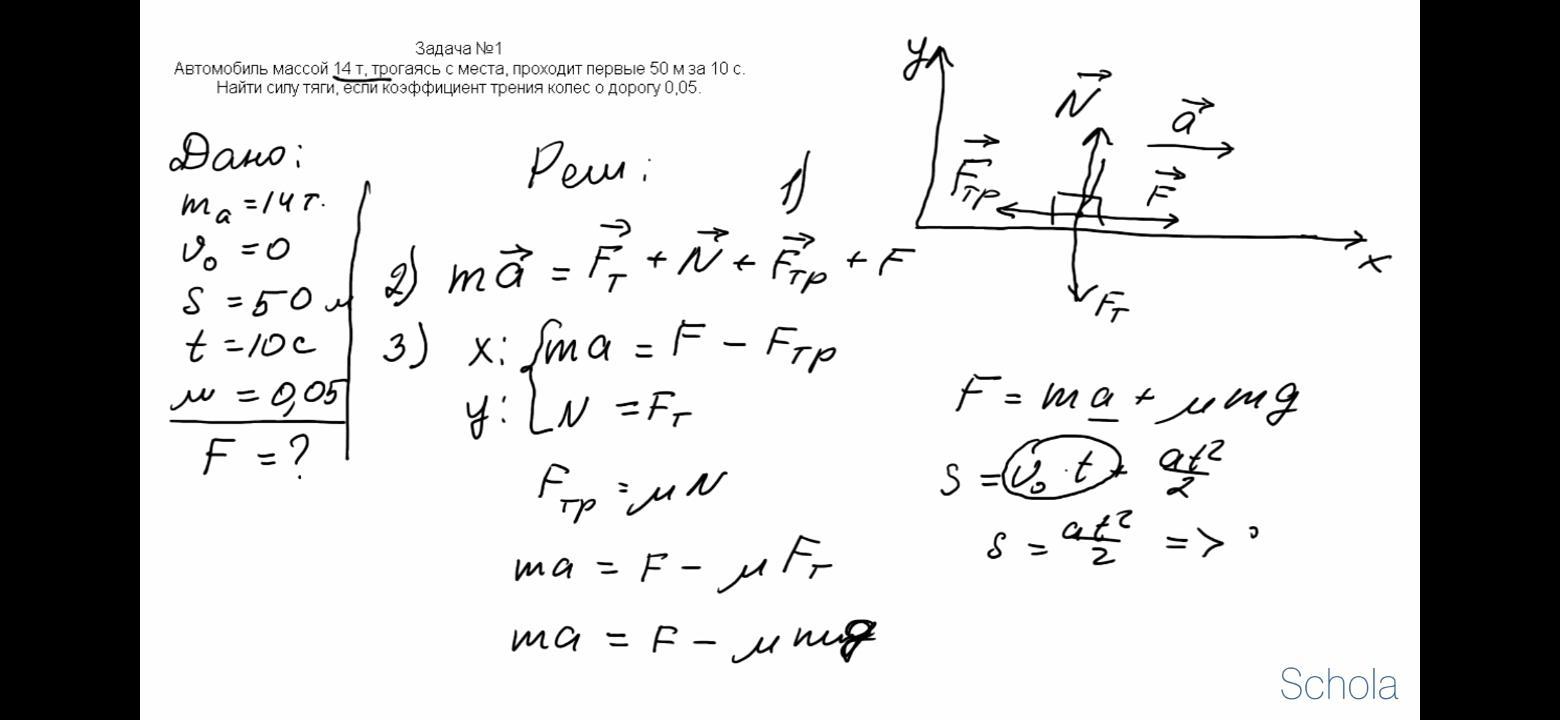 Задача №1
Автомобиль массой 14 т, трогаясь с места, проходит первые 50 м за 10 с.
Найти силу тяги, если коэффициент трения колес о дорогу 0,05.
Дано:
mₐ = 14 т.
v₀ = 0
s = 50 м
t = 10 с
μ = 0,05
F = ?
Реш:
1)
y
N⃗
a⃗
F⃗тр
F⃗
x
Fт
2) ma⃗ = F⃗т + N⃗ + F⃗тр + F
3) x: { ma = F - Fтр
y: { N = Fт
Fтр = μN
ma = F - μFт
ma = F - μmg
F = ma + μmg
S = v₀ · t + at²/2
s = at²/2 =>
Schola